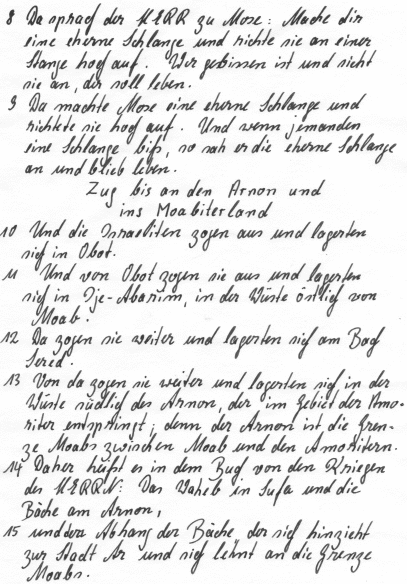 8 Da sprach der HERR zu Mose: Mache dir
eine eherne Schlange und richte sie an einer
Stange hoch auf. Wer gebissen ist und sieht
sie an, der soll leben.
9 Da machte Mose eine eherne Schlange und
richtete sie hoch auf. Und wenn jemanden
eine Schlange biß, so sah er die eherne Schlange
an und blieb leben.
Zug bis an den Arnon und
ins Moabiterland
10 Und die Israeliten zogen aus und lagerten
sich in Obot.
11 Und von Obot zogen sie aus und lagerten
sich in Ije-Abarim, in der Wüste östlich von
Moab.
12 Da zogen sie weiter und lagerten sich am Bach
Sered.
13 Von da zogen sie weiter und lagerten sich in der
Wüste südlich des Arnon, der im Gebiet der Amo-
riter entspringt; denn der Arnon ist die Gren-
ze Moabs zwischen Moab und den Amoritern.
14 Daher heißt es in dem Buch von den Kriegen
des HERRN: Das Waheb in Sufa und die
Bäche am Arnon,
15 und der Abhang der Bäche, der sich hinzieht
zur Stadt Ar und sich lehnt an die Grenze
Moabs.